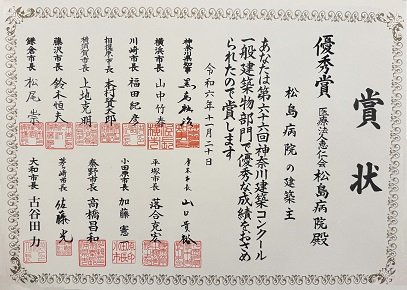 賞状
優秀賞
医療法人恵仁会
松島病院殿
松島病院の建築主
あなたは第六十六回神奈川建築コンクール
一般建築物部門で優秀な成績をおさめ
られたので賞します
令和六年十一月二十日
神奈川県知事 黒岩祐治
横浜市長 山中竹春
川崎市長 福田紀彦
相模原市長 本村賢太郎
横須賀市長 上地克明
藤沢市長 鈴木恒夫
鎌倉市長 松尾崇
厚木市長 山口貴裕
平塚市長 落合克宏
小田原市長 加藤憲一
秦野市長 高橋昌和
茅ヶ崎市長 佐藤光
大和市長 古谷田力